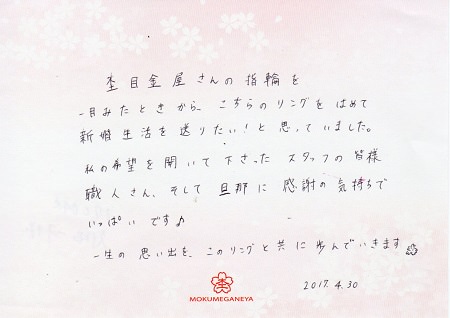 杢目金屋さんの指輪を
一目みたときから、こちらのリングをはめて
新婚生活を送りたい!と思っていました。
私の希望を聞いて下さった スタッフの皆様
職人さん、そして旦那に 感謝の気持ちで
いっぱいです♪
一生の思い出を、このリングと共に歩んでいきます
杢
MOKUMEGANEYA
2017.4.30